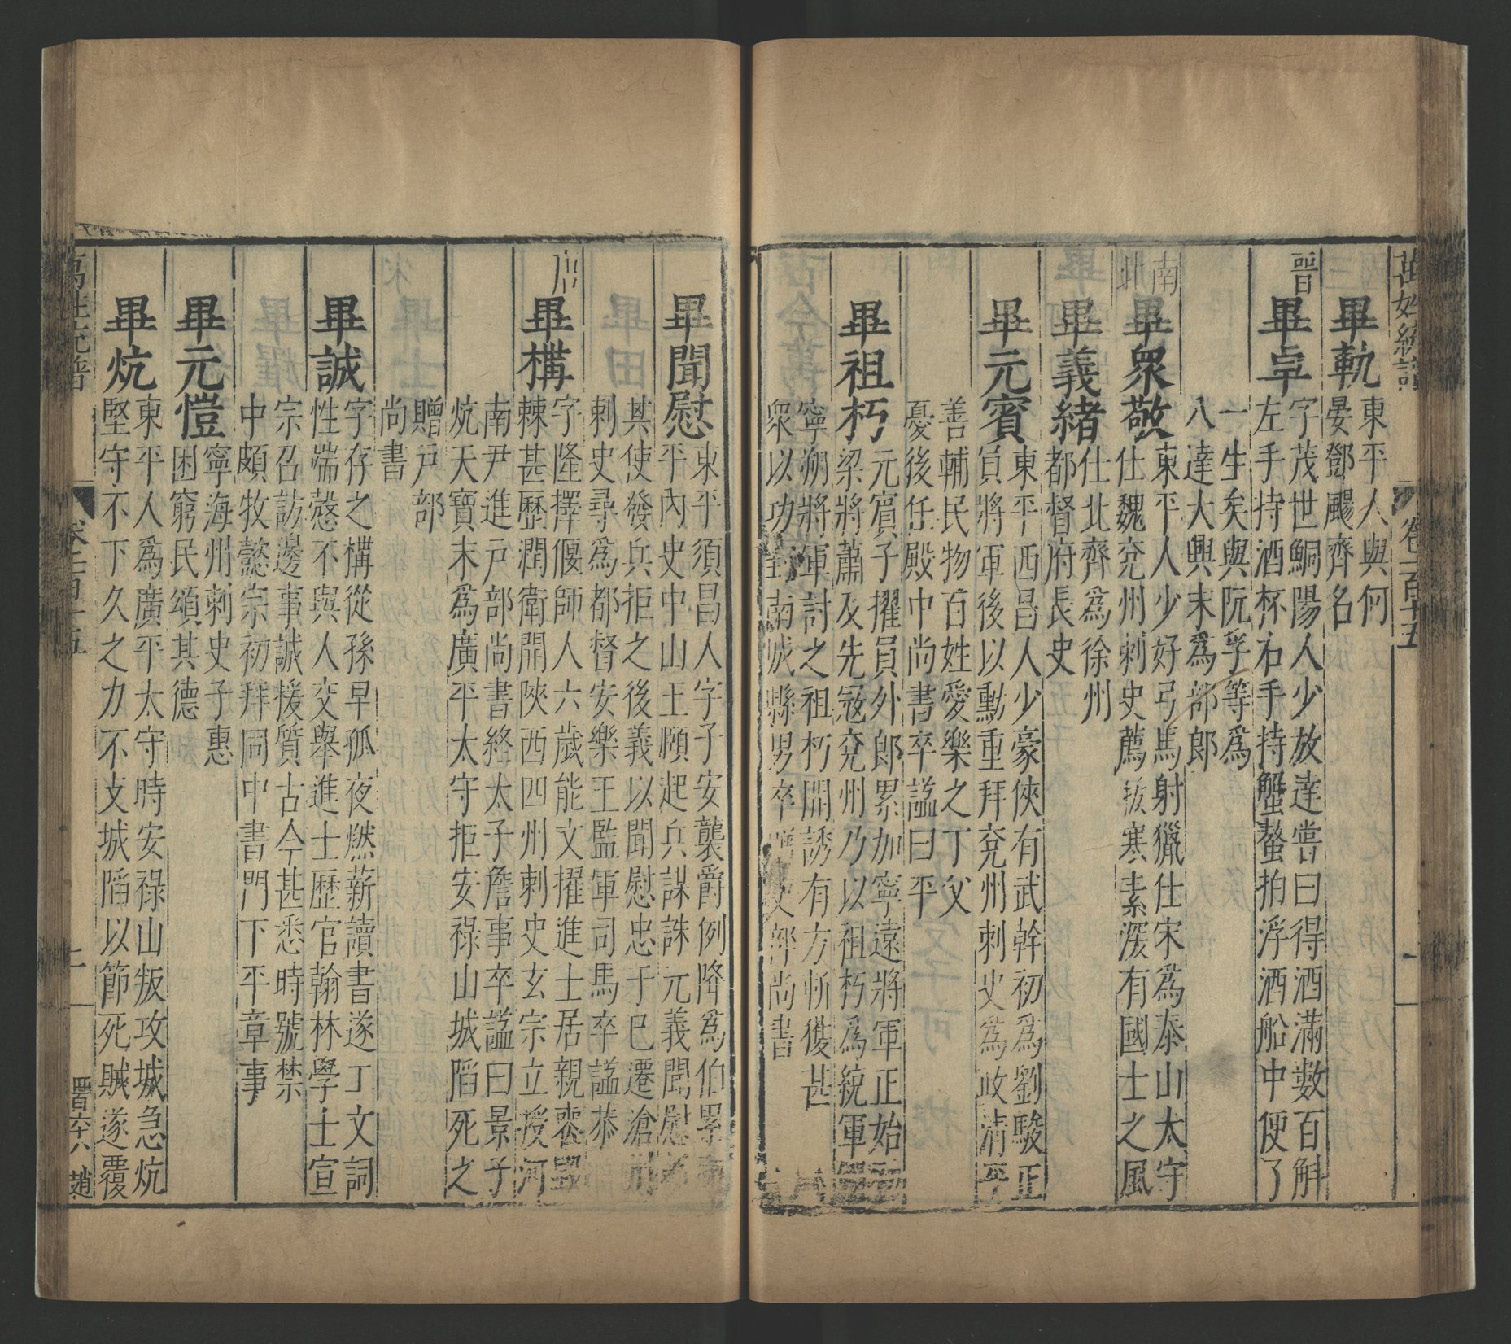 萬姓統譜
卷一百十五
畢軌
東平人與何
晏鄧颺齊名
晉
畢卓
字茂世鮦陽人少放達嘗曰得酒滿數百斛
左手持酒杯右手持蟹螯拍浮酒船中便了
一生矣與阮孚等爲
八達大興末爲部郎
南北
畢眾敬
東平人少好弓馬射獵仕宋為泰山太守
仕魏兗州刺史薦拔寒素深有國士之風
畢義緒
仕北齊為徐州
都督府長史
畢元賓
東平西昌人少豪俠有武幹初為劉駿正
員將軍後以勳重拜兗州刺史為政清平
善輔民物百姓愛樂之丁父
憂後任殿中尚書卒謚曰平
畢祖朽
元賓子擢員外郎累加寧遠將軍正始
梁將蕭及先冦兗州乃以祖朽為統軍
寧朔將軍討之祖朽開誘有方斬獲甚
眾以功封南城縣男卒贈吏部尚書
畢聞慰
東平須昌人字子安襲爵例降為伯累
平內史中山王頤起兵謀誅元義聞慰
其使發兵拒之後義以聞慰忠于巳遷滄州
刺史尋為都督安樂王監軍司馬卒謚恭
唐
畢構
字隆擇偃師人六歲能文擢進士居親喪毀
棘甚歷潤衛開陝西四州刺史玄宗立授河
南尹進戶部尚書終太子詹事卒謚曰景子
炕天寶末為廣平太守拒安祿山城陷死之
贈戶部
尚書
畢諴
字存之構從孫早孤夜燃薪讀書遂工文詞
性端慤不與人交舉進士歷官翰林學士宣
宗召訪邊事諴援質古今甚悉時號禁
中頗牧懿宗初拜同中書門下平章事
畢元愷
寧海州刺史子惠
困窮民頌其德
畢炕
東平人為廣平太守時安祿山叛攻城急炕
堅守不下久之力不支城陷以節死賊遂覆
萬姓統譜
卷一百十五